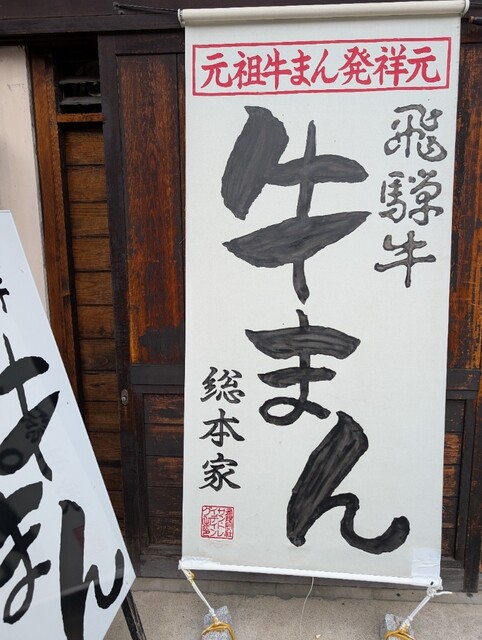 元祖牛まん発祥元
飛騨牛
牛まん
総本家
まん